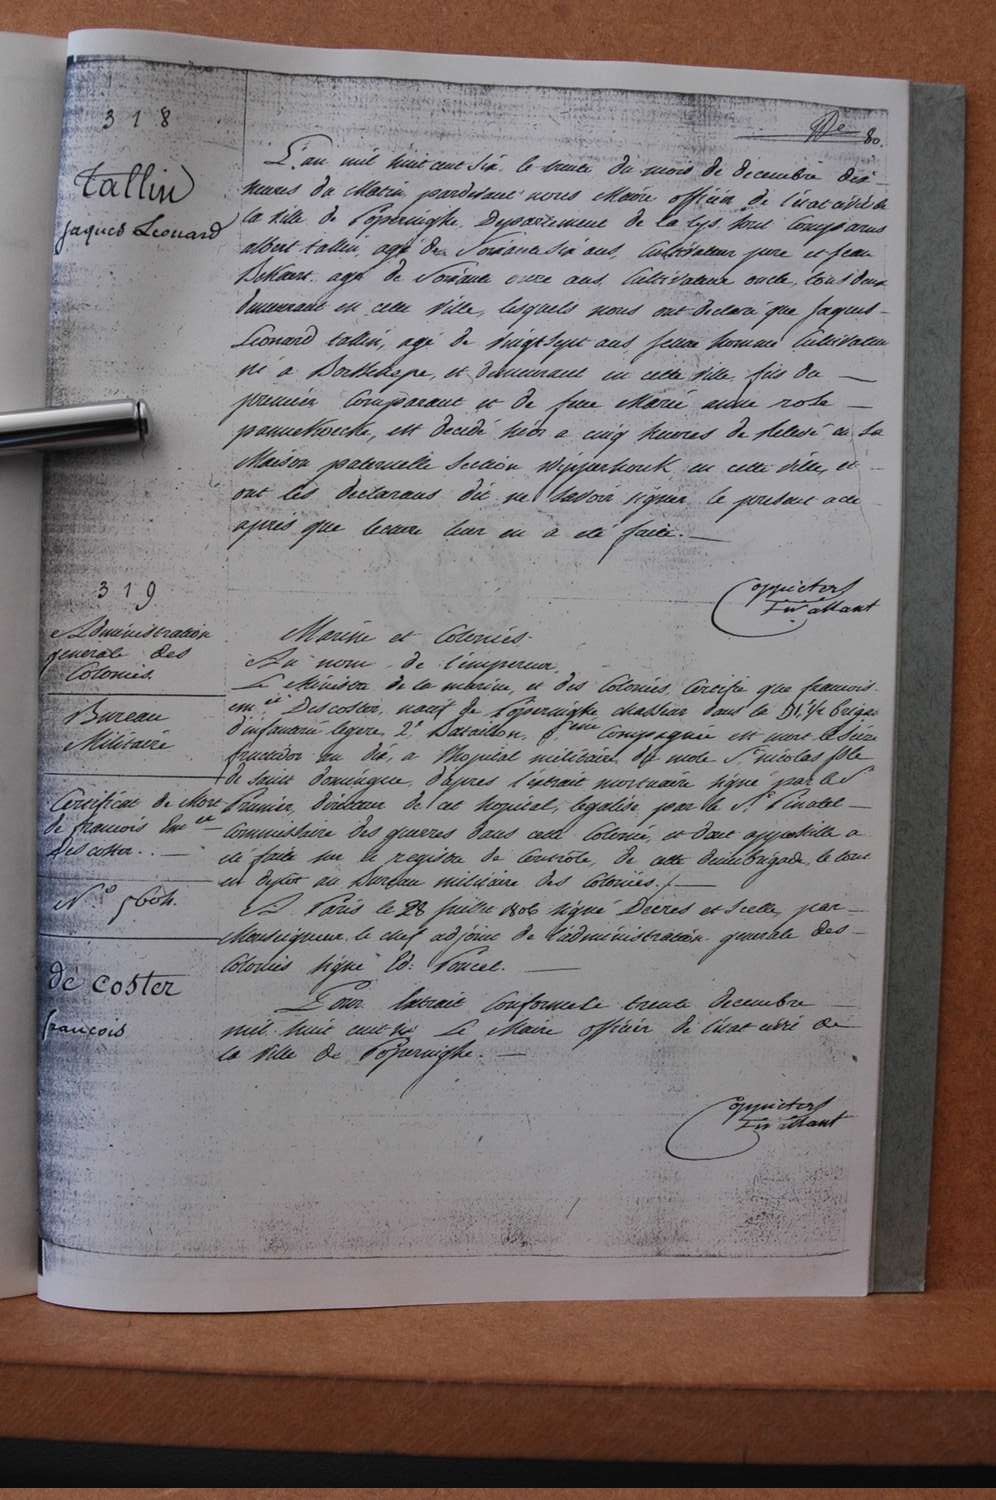 80.
318
tallin
jaques Leonard
L'an mil huit cent six le trente du mois de decembre dix
heures du Matin pardevant nous Maire officier de l'etat civil de
la ville de Poperinghe, Departement de la Lys, sont comparus
albert tallin, agé de Soixante Six ans, Cultivateur pere et jean
agé de Soixante ans, Cultivateur oncle, tous deux
demeurant en cette Ville, lesquels nous ont declaré que jaques
Leonard tallin, agé de vingt sept ans jeune homme Cultivateur
né a et demeurant en cette ville, fils du
premier Comparant et de feue Marie anne rose
est decedé hier a cinq heures de Relevé en Sa
Maison paternelle Section en cette ville, et
ont les declarans dit ne Savoir signer le present acte
aprés que lecture leur en a eté faite.
319
Administration
generale des
Colonies.
Bureau
Militaire
Certificat de Mort
de francois Em.el
descoster.
N.o 5604.
de coster
francois
Marine et Colonies.
Au nom de l'empereur
Le Ministre de la marine, et des Colonies, Certifie que francois
em.el Descoster, natif de Poperinghe chasseur dans la 1/2 brigade
d'infanterie légere, 2.e Bataillon, Compagnie est mort le Seize
fructidor an dix, a l'hopital militaire du mole S.t nicolas Isle
de Saint domingue, d'apres l'extrait mortuaire signé par le S.r
Prunier, directeur de cet hopital, legalisé par le S.r Pinatel
Commissaire des guerres dans cette Colonie, et dont appostille a
eté faite sur le registre de Controle, de cette demibrigade, le tout
en depot au Bureau militaire des Colonies./.
A Paris le 28 juillet 1806 signé Decres et Scellé, par
Monseigneur, le chef adjoint de l'administration generale des
Colonies signé Ed: Poncet.
Pour Extrait Conforme le trente decembre
mil huit cent six Le Maire officier de l'etat civil de
la Ville de Poperinghe.